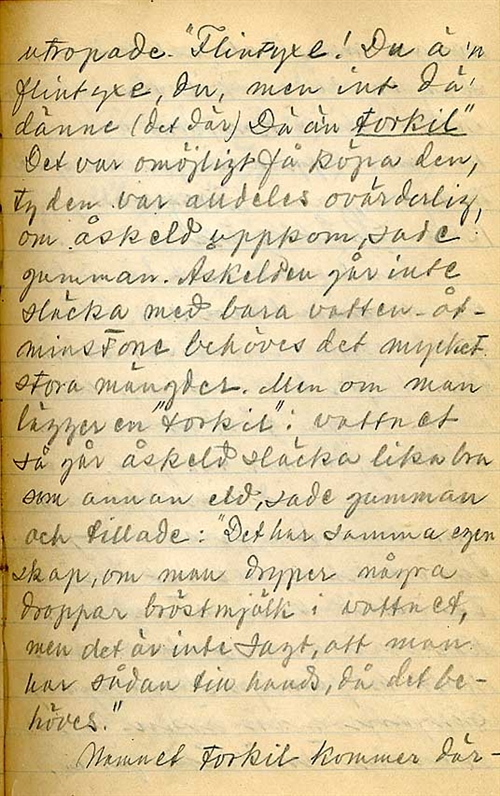 utropade. "Flintyxe! Du ä 'n
flintyxe, du, men int dä'
dänne (det där) Dä ä'n Torkil"
Det var omöjligt få köpa den,
ty den var alldeles ovärderlig,
om åskeld uppkom, sade
gumman. Åskelden går inte
släcka med bara vatten - åt-
minstone behöves det mycket
stora mängder. Men om man
lägger en "Torkil" i vattnet
så går åskeld släcka lika bra
som annan eld, sade gumman
och tillade: "Det har samma egen
skap, om man dryper några
droppar bröstmjölk i vattnet,
men det är inte sagt, att man
har sådan till hands, då det be-
höves."
Namnet Torkil kommer där-